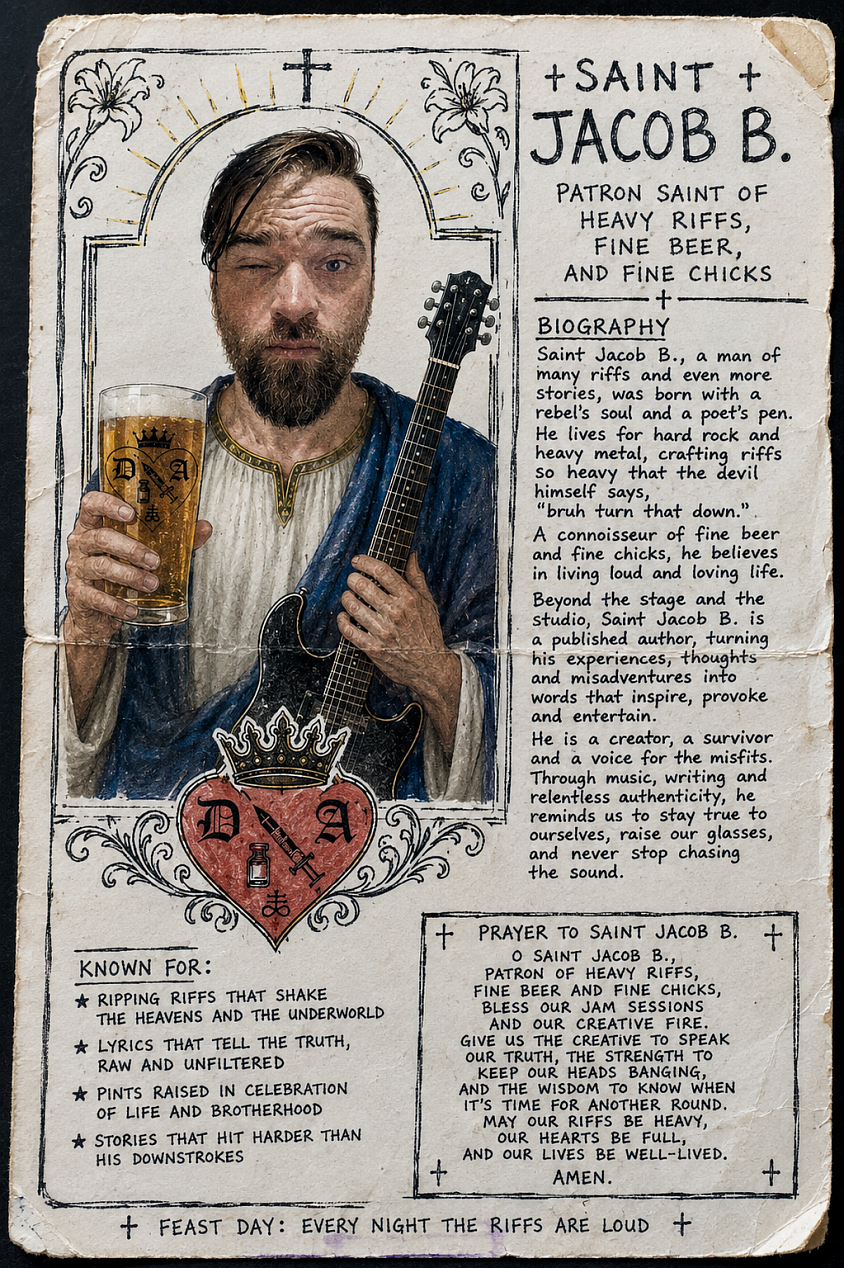 + SAINT +
JACOB B.
PATRON SAINT OF
HEAVY RIFFS,
FINE BEER,
AND FINE CHICKS
BIOGRAPHY
Saint Jacob B., a man of
many riffs and even more
stories, was born with a
rebel's soul and a poet's pen.
He lives for hard rock and
heavy metal, crafting riffs
so heavy that the devil
himself says,
"bruh turn that down."
A connoisseur of fine beer
and fine chicks, he believes
in living loud and loving life.
Beyond the stage and the
studio, Saint Jacob B. is
a published author, turning
his experiences, thoughts
and misadventures into
words that inspire, provoke
and entertain.
He is a creator, a survivor
and a voice for the misfits.
Through music, writing and
relentless authenticity, he
reminds us to stay true to
ourselves, raise our glasses,
and never stop chasing
the sound.
D A
D A
KNOWN FOR:
★ RIPPING RIFFS THAT SHAKE
THE HEAVENS AND THE UNDERWORLD
★ LYRICS THAT TELL THE TRUTH,
RAW AND UNFILTERED
★ PINTS RAISED IN CELEBRATION
OF LIFE AND BROTHERHOOD
★ STORIES THAT HIT HARDER THAN
HIS DOWNSTROKES
PRAYER TO SAINT JACOB B.
O SAINT JACOB B.,
PATRON OF HEAVY RIFFS,
FINE BEER AND FINE CHICKS,
BLESS OUR JAM SESSIONS
AND OUR CREATIVE FIRE.
GIVE US THE CREATIVE TO SPEAK
OUR TRUTH, THE STRENGTH TO
KEEP OUR HEADS BANGING,
AND THE WISDOM TO KNOW WHEN
IT'S TIME FOR ANOTHER ROUND.
MAY OUR RIFFS BE HEAVY,
OUR HEARTS BE FULL,
AND OUR LIVES BE WELL-LIVED.
AMEN.
FEAST DAY: EVERY NIGHT THE RIFFS ARE LOUD